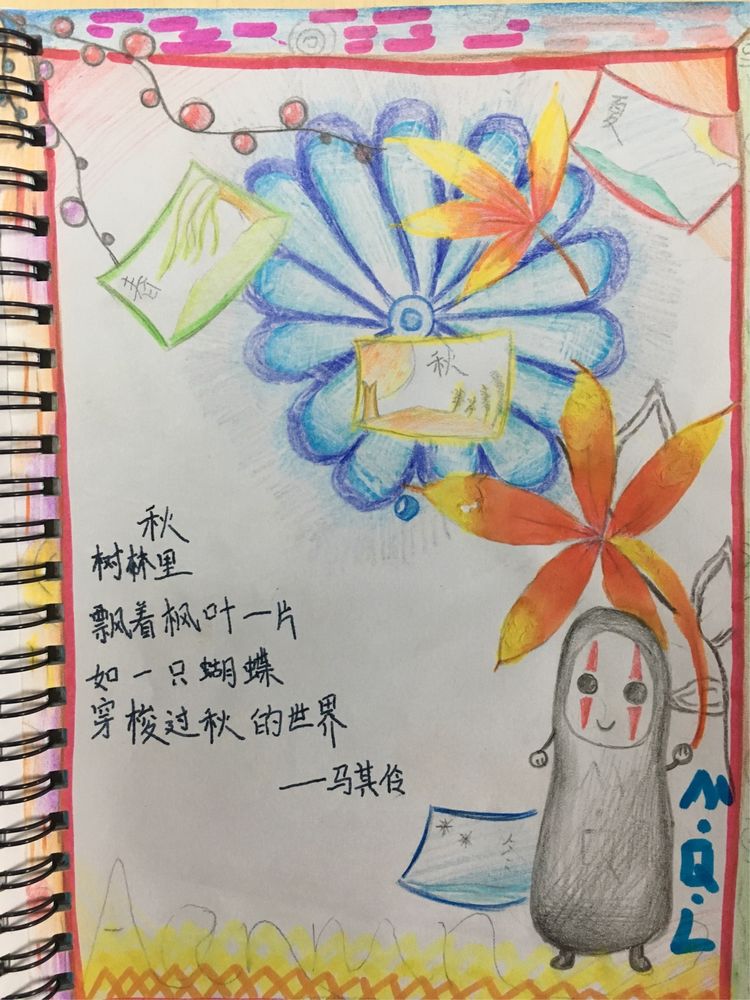 夏
春
秋
秋
树林里
飘着枫叶一片
如一只蝴蝶
穿梭过秋的世界
——马其伶
M.Q.L